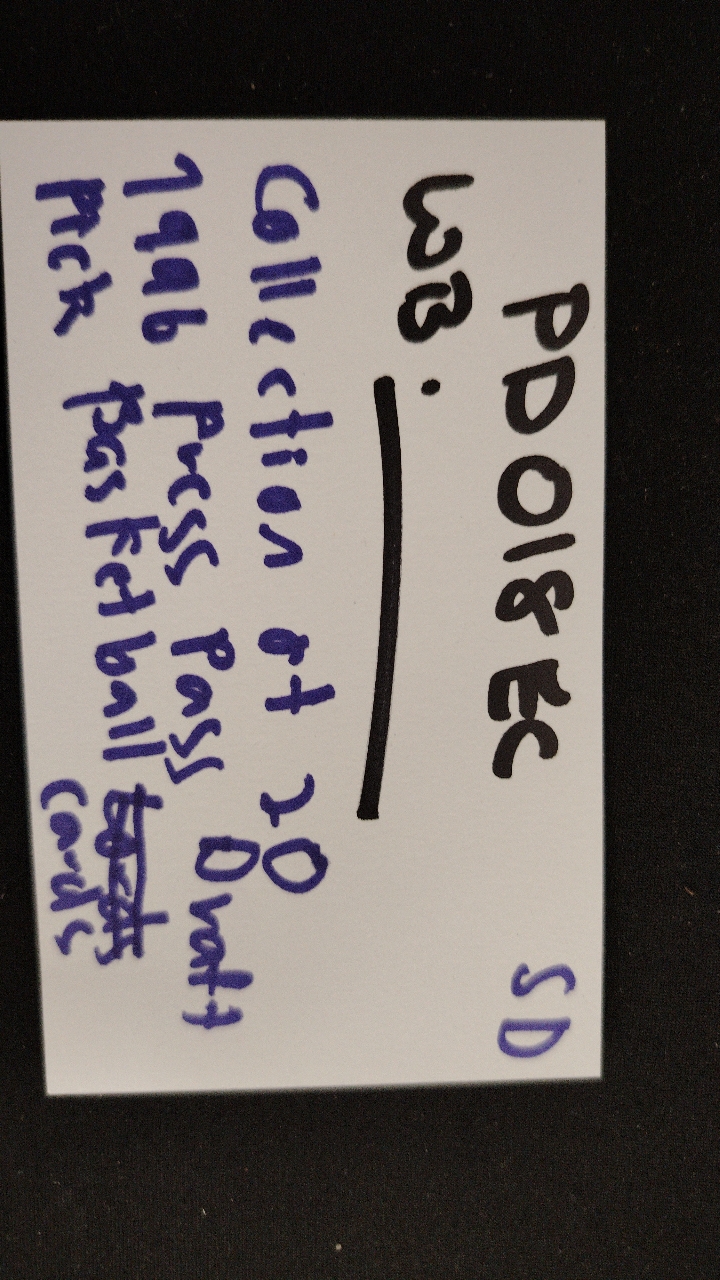 PD018EC SD
WB:
Collection of 20
1996 Press Pass Draft
Pick Basketball cards
Cards